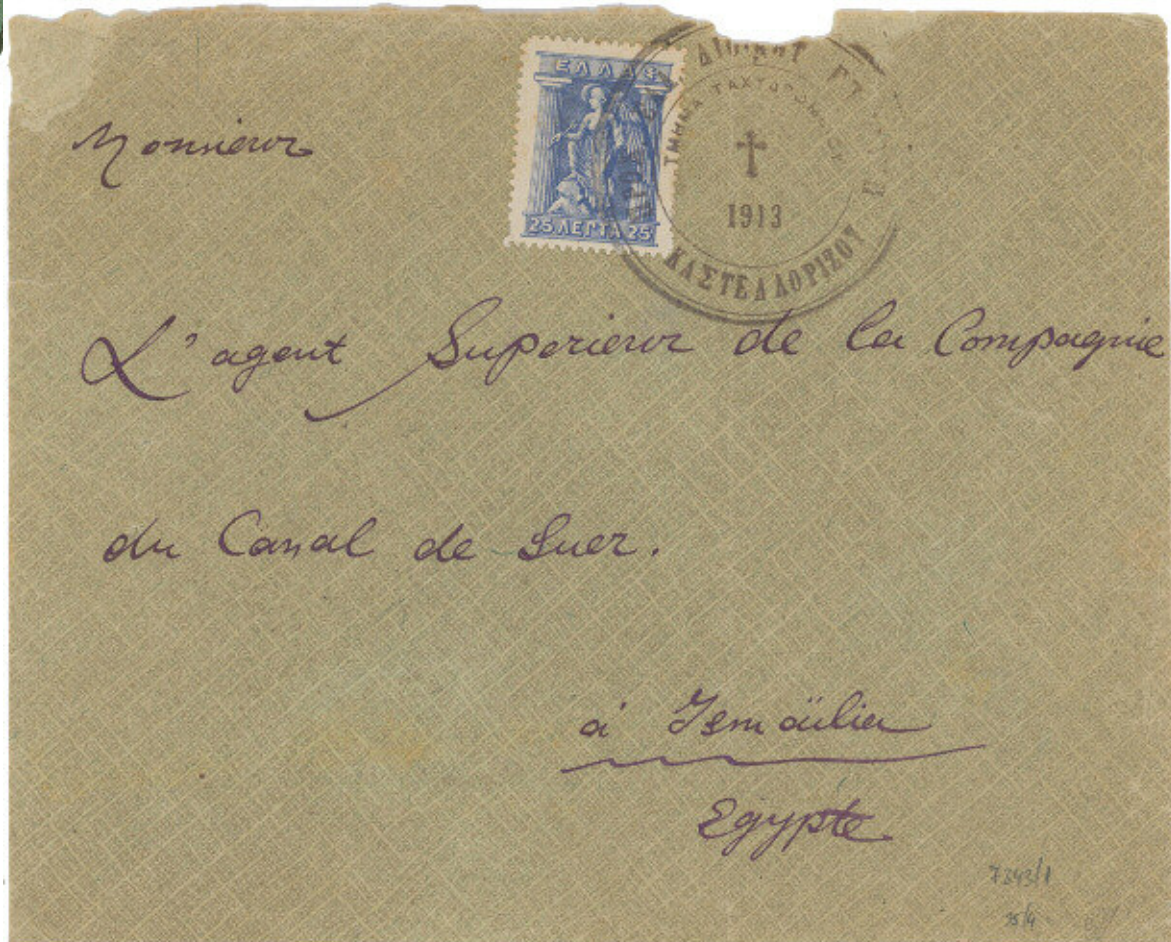 ΕΛΛΑΣ
25 ΛΕΠΤΑ 25
ΤΜΗΜΑ
1913
ΚΑΣΤΕΛΛΟΡΙΖΟΥ
Monsieur
L'agent Superieur de la Compagnie
du Canal de Suez.
à Ismaïlia
Egypte
7343/1
35/4